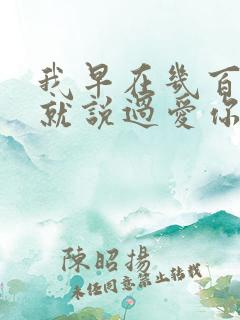 我早在幾百
就説過愛你
陳昭揚
未經同意禁止轉載